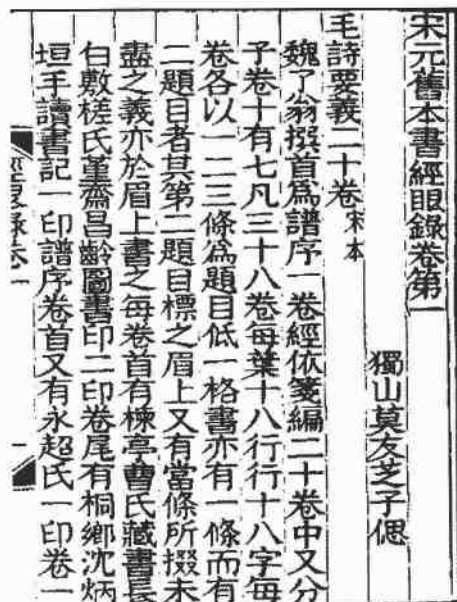 宋元舊本書經眼錄卷第一
獨山莫友芝子偲
毛詩要義二十卷宋本
魏了翁撰首爲譜序一卷經依箋編二十卷中又分
子卷十有七凡三十八卷每葉十八行行十八字每
卷各以一二三條爲題目低一格書亦有一條而有
二題目者其第二題目標之眉上又有當條所掇未
盡之義亦於眉上書之每卷首有楝亭曹氏藏書長
白敷槎氏堇齋昌齡圖書印二印卷尾有桐鄉沈炳
垣手讀書記一印譜序卷首又有永超氏一印卷一